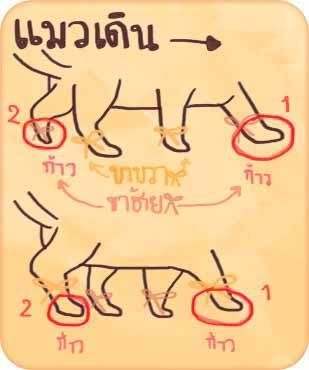 แมวเดิน
2
1
ก้าว
ขาขวา
ก้าว
ขาซ้าย
2
1
ก้าว
ก้าว